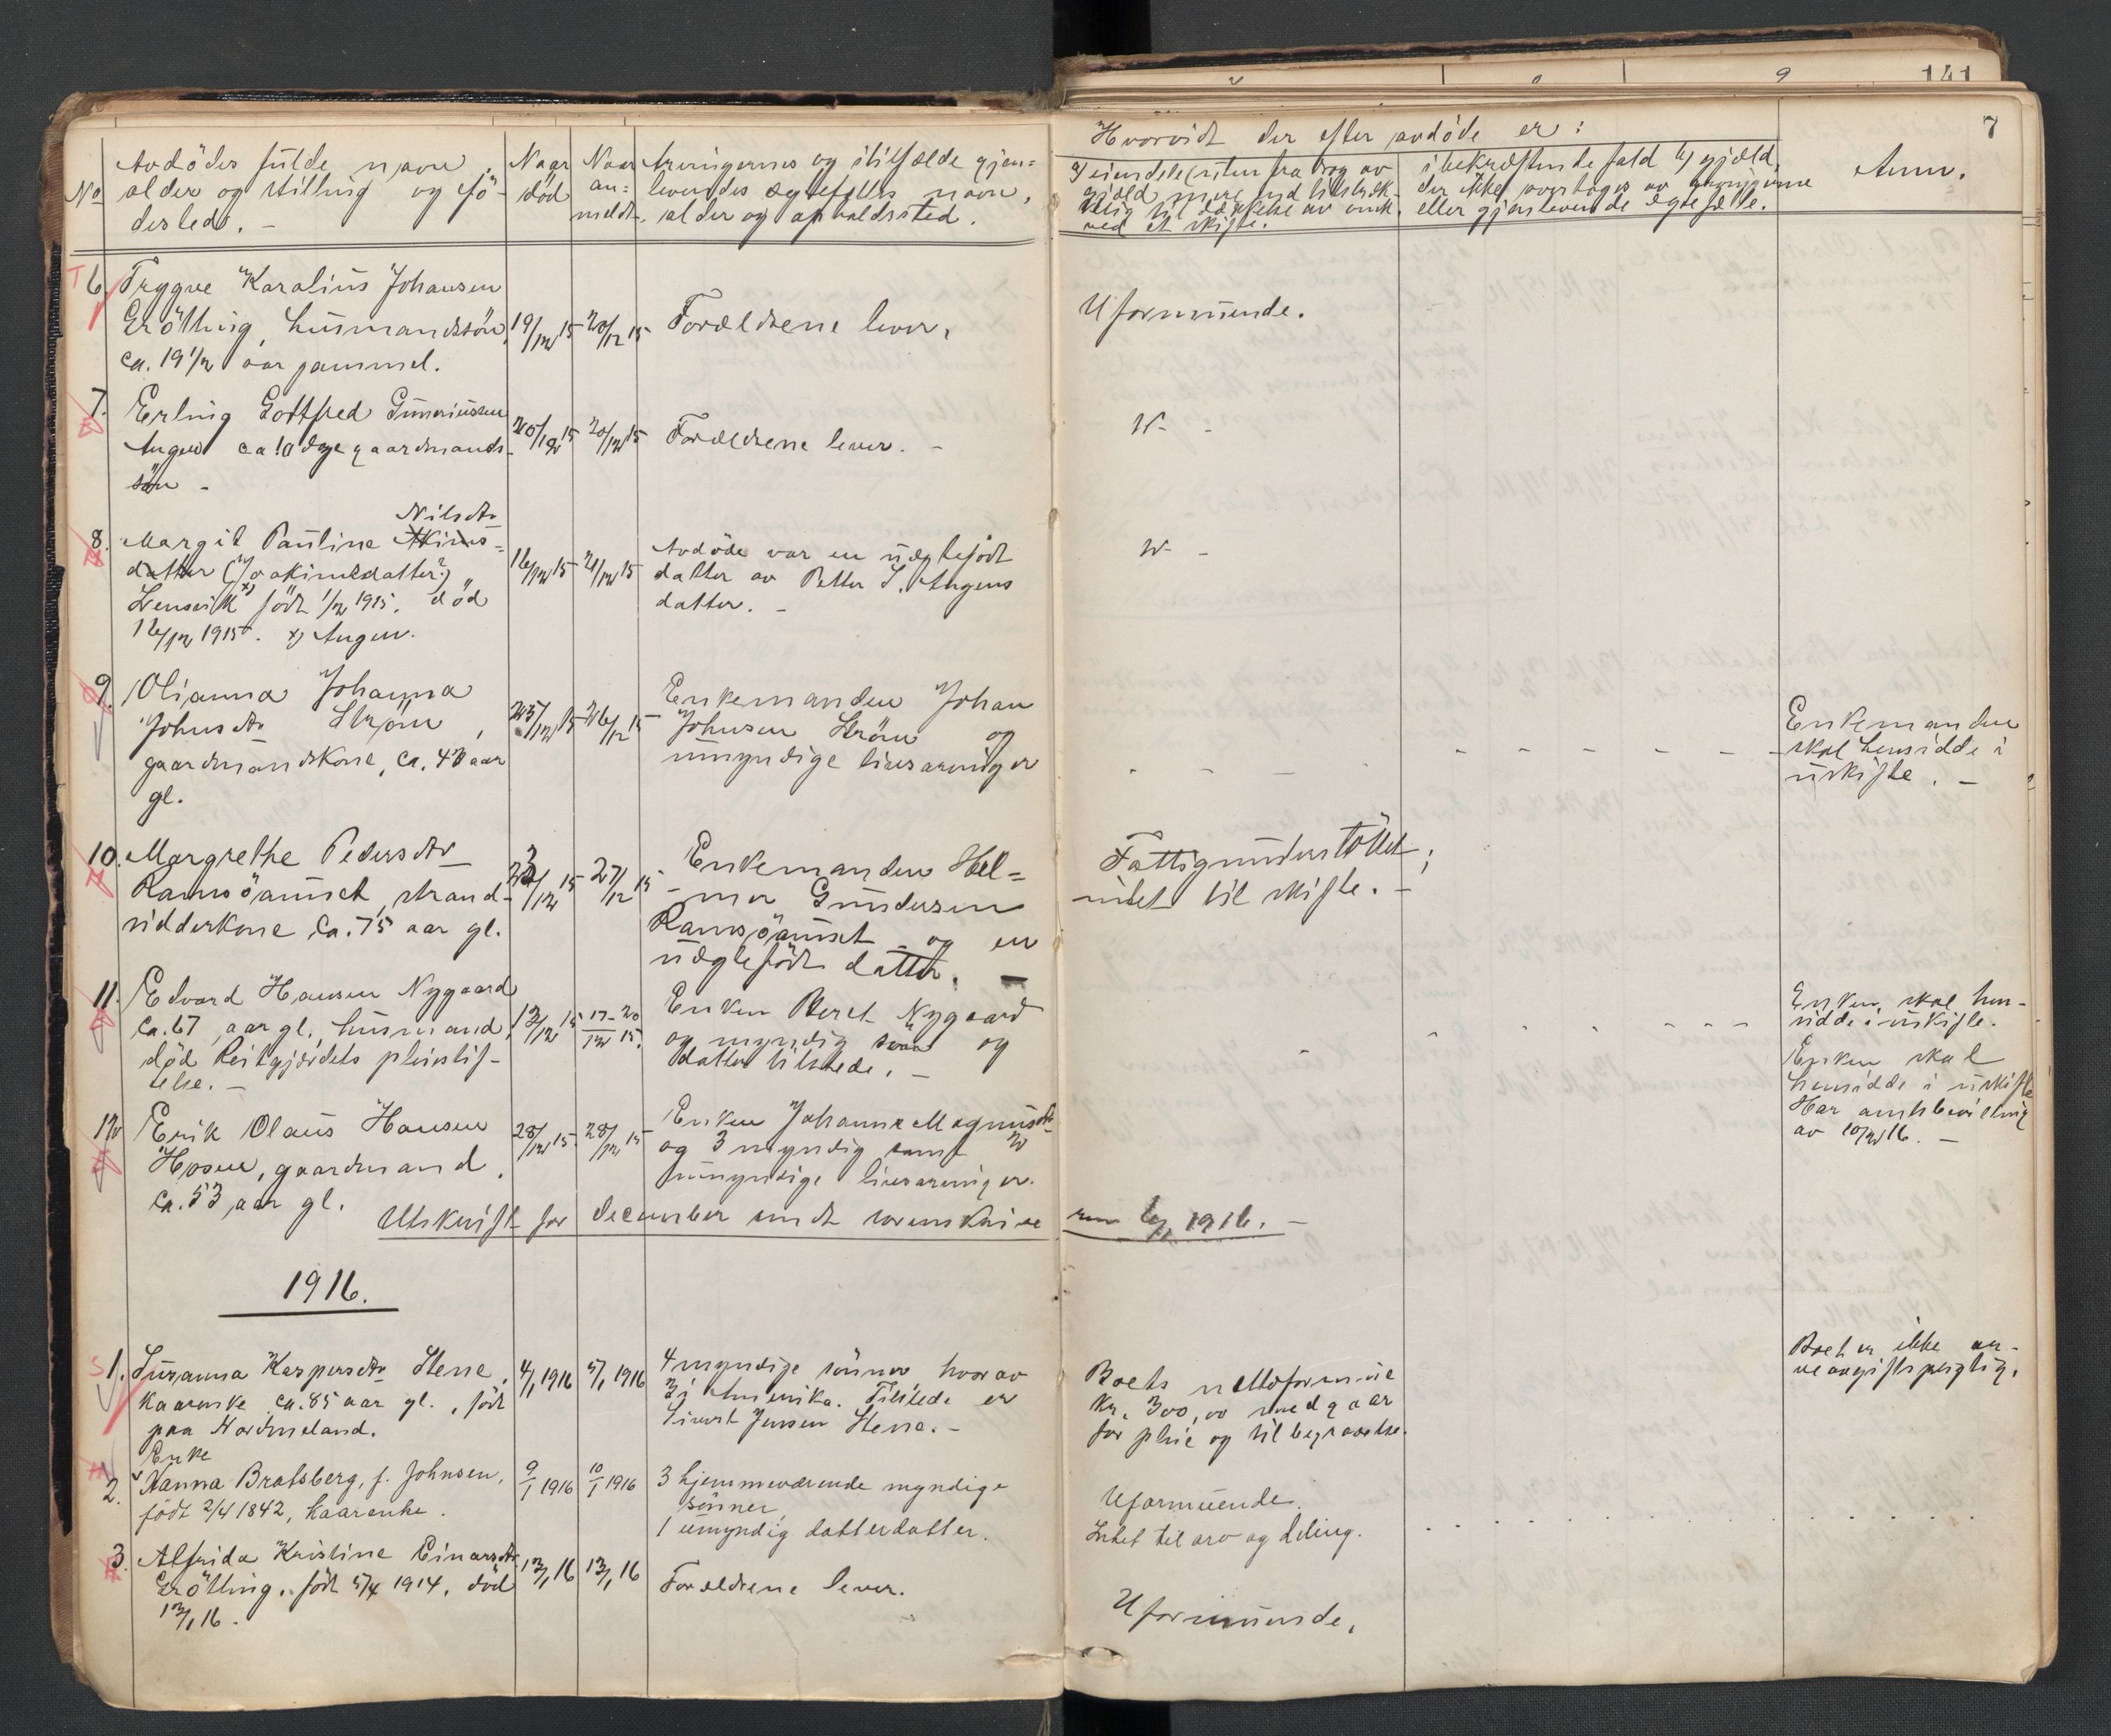 141
7
No
Avdödes fulde navn,
alder og stilling og fö-
dested. -
Naar
död
Naar
an=
meldt.
Arvingernes og i tilfælde gjen=
levendes ægtefælles navn,
alder og opholdssted.
Hvorvidt der efter avdöde er:
a) eiendele (uten fradrag av
gjæld mere end tilstræk-
kelig til dækkelse av omk.
ved et skifte.
i bekræftende fald b) gjæld,
der ikke overtages av arvingerne
eller gjenlevende ægtefælle.
Anm.
T 6. Trygve Karolius Johansen
Grötting, husmandssön,
ca. 19 1/2 aar gammel.
19/12 15
20/12 15
Forældrene lever.
Uformuende.
7. Erling Gottfred Guneriussen
Angen ca 10 dge gaardmands-
sön -
20/12 15
20/12 15
Forældrene lever. -
8. Margit Pauline Nilsdtr
datter (Joakimsdatter?)
Lensvik x) födt 1/12 1915. död
16/12 1915. x) Angen.
16/12 15
21/12 15
Avdöde var en uægtefödt
datter av Petter I. Angens
datter. -
9. Olianna Johanna
Johnsdtr Ström,
gaardmandskone, ca. 43 aar
gl.
25/12 15
26/12 15
Enkemanden Johan
Johnsen Ström og
umyndige livsarvinger
Enkemanden
skal hensidde i
uskifte. -
10. Margrethe Pedersdtr
Ramsöaunet, strand-
sidderkone ca. 75 aar gl.
23/12 15
27/12 15
Enkemanden Hel=
mer Gundersen
Ramsöaunet og en
uægtefödt datter. -
Fattigunderstöttet;
intet til skifte. -
11. Edvard Hansen Nygaard
ca. 67 aar gl, husmand,
död Reitgjærdets pleiestif-
telse. -
12/12 15
17-20/12 15.
Enken Beret Nygaard
og myndig sön og
datter tilstede. -
Enken skal hen-
sidde i uskifte.
12 Erik Olaus Hansen
Hosen, gaardmand,
ca. 53 aar gl.
28/12 15
28/12 15
Enken Johanna Magnusdtr
og 3 myndig samt 2
umyndige livsarvinger.
Enken skal
hensidde i uskifte
Har amtsbevilling
av 10/2 16. -
Utskrift for december sendt sorenskrive
ren 6/1 1916. -
1916.
S 1. Susanna Kaspersdtr Stene,
kaarenke ca. 85 aar gl., födt
paa Nordmeland.
4/1 1916
5/1 1916
4 myndige sönner hvorav
2 i Amerika. Tilstede er
Sivert Jensen Stene. -
Boets nettoformue
kr. 300,00 medgaar
for pleie og til begravelse.
Boet er ikke ar-
veavgiftspligtig.
2. Enke
Nanna Bratsberg, f. Johnsen,
födt 2/4 1842, kaarenke.
9/1 1916
10/1 1916
3 hjemmeværende myndige
sönner,
1 umyndig datterdatter.
Uformuende.
Intet til arv og deling.
3. Alfrida Kristine Einarsdtr
Grötting, födt 5/4 1914, död
12/1 16.
12/1 16
13/1 16
Forældrene lever.
Uformuende,